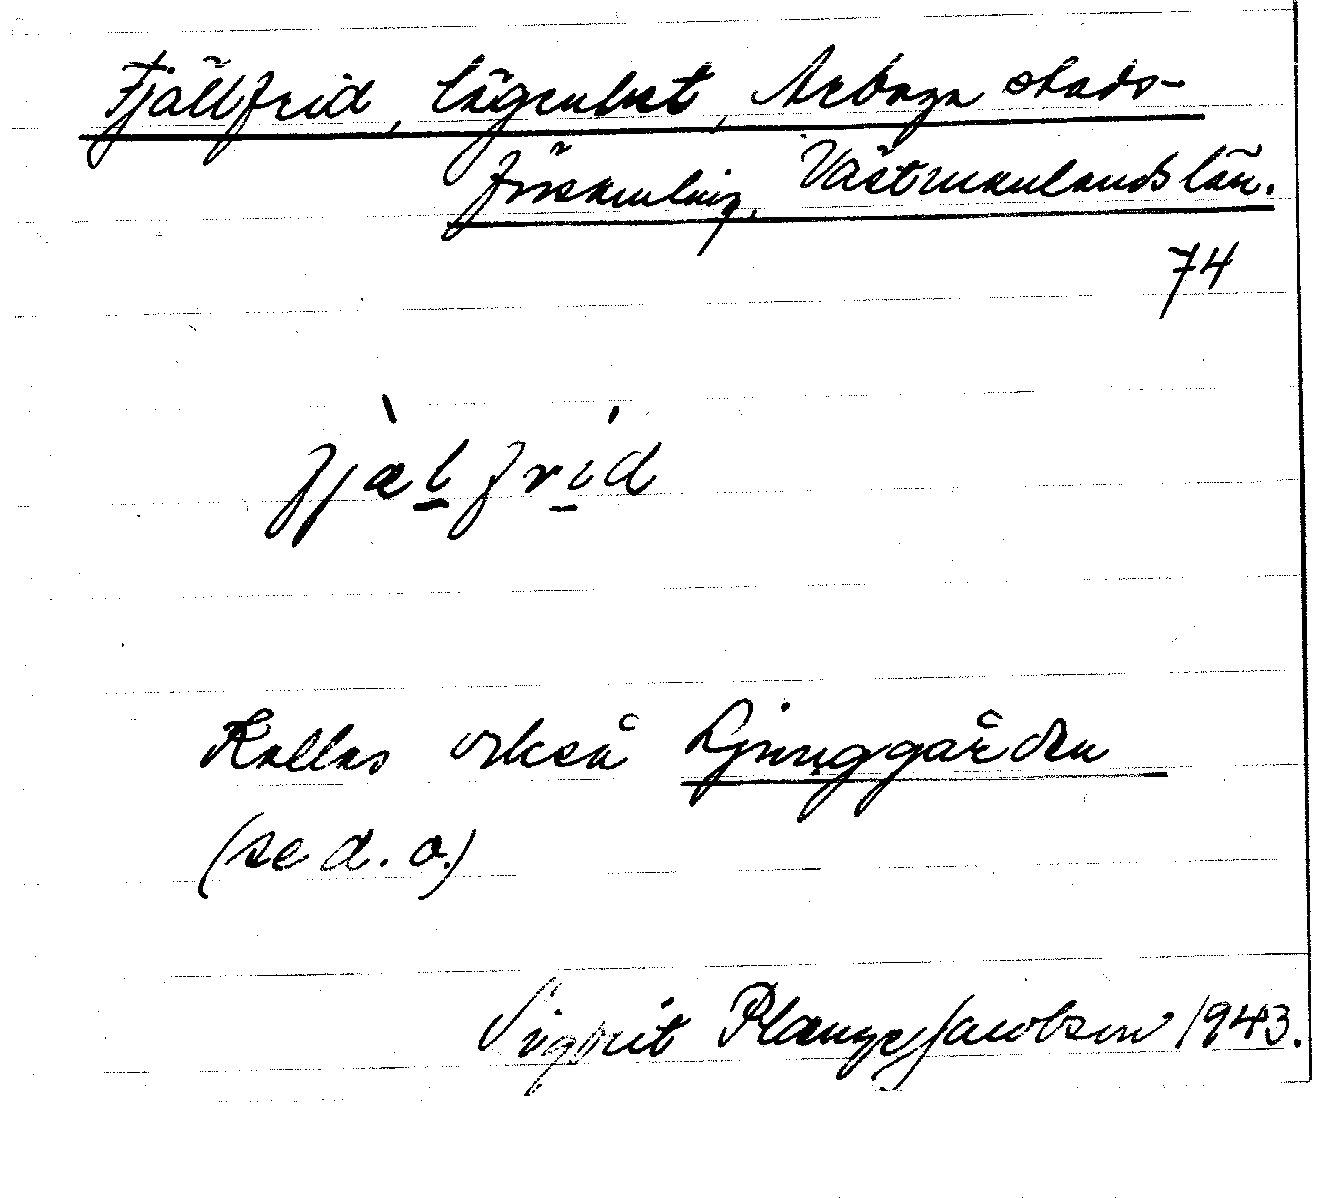 Fjällfrid, lägenhet, Arboga stads-
församling, Västmanlands län.
74
fjæ̀lfríd
Kallas också Ljunggården
(se d. o.)
Sigfrit Plange Jacobson 1943.